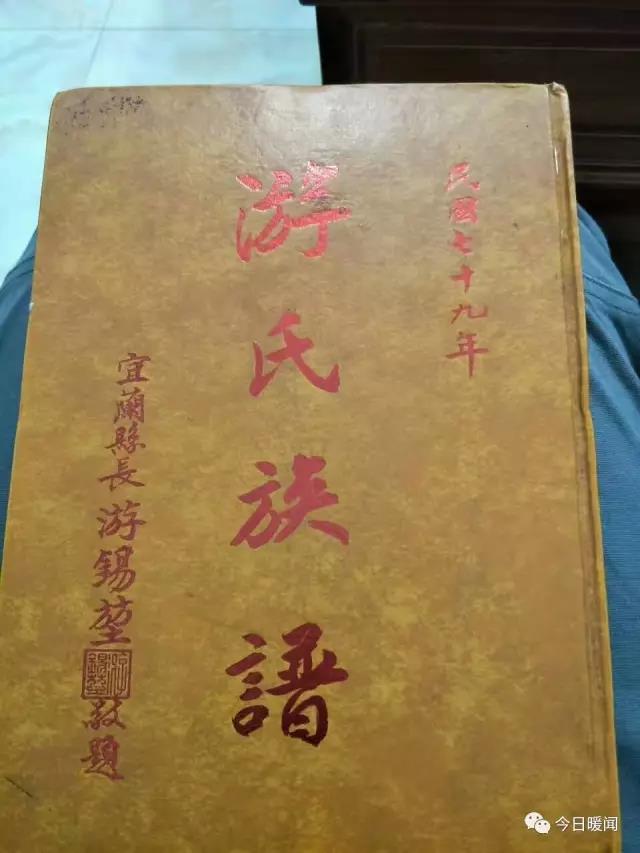 民國七十九年
游氏族譜
宜蘭縣長游錫堃敬題
游錫堃
今日暖闻